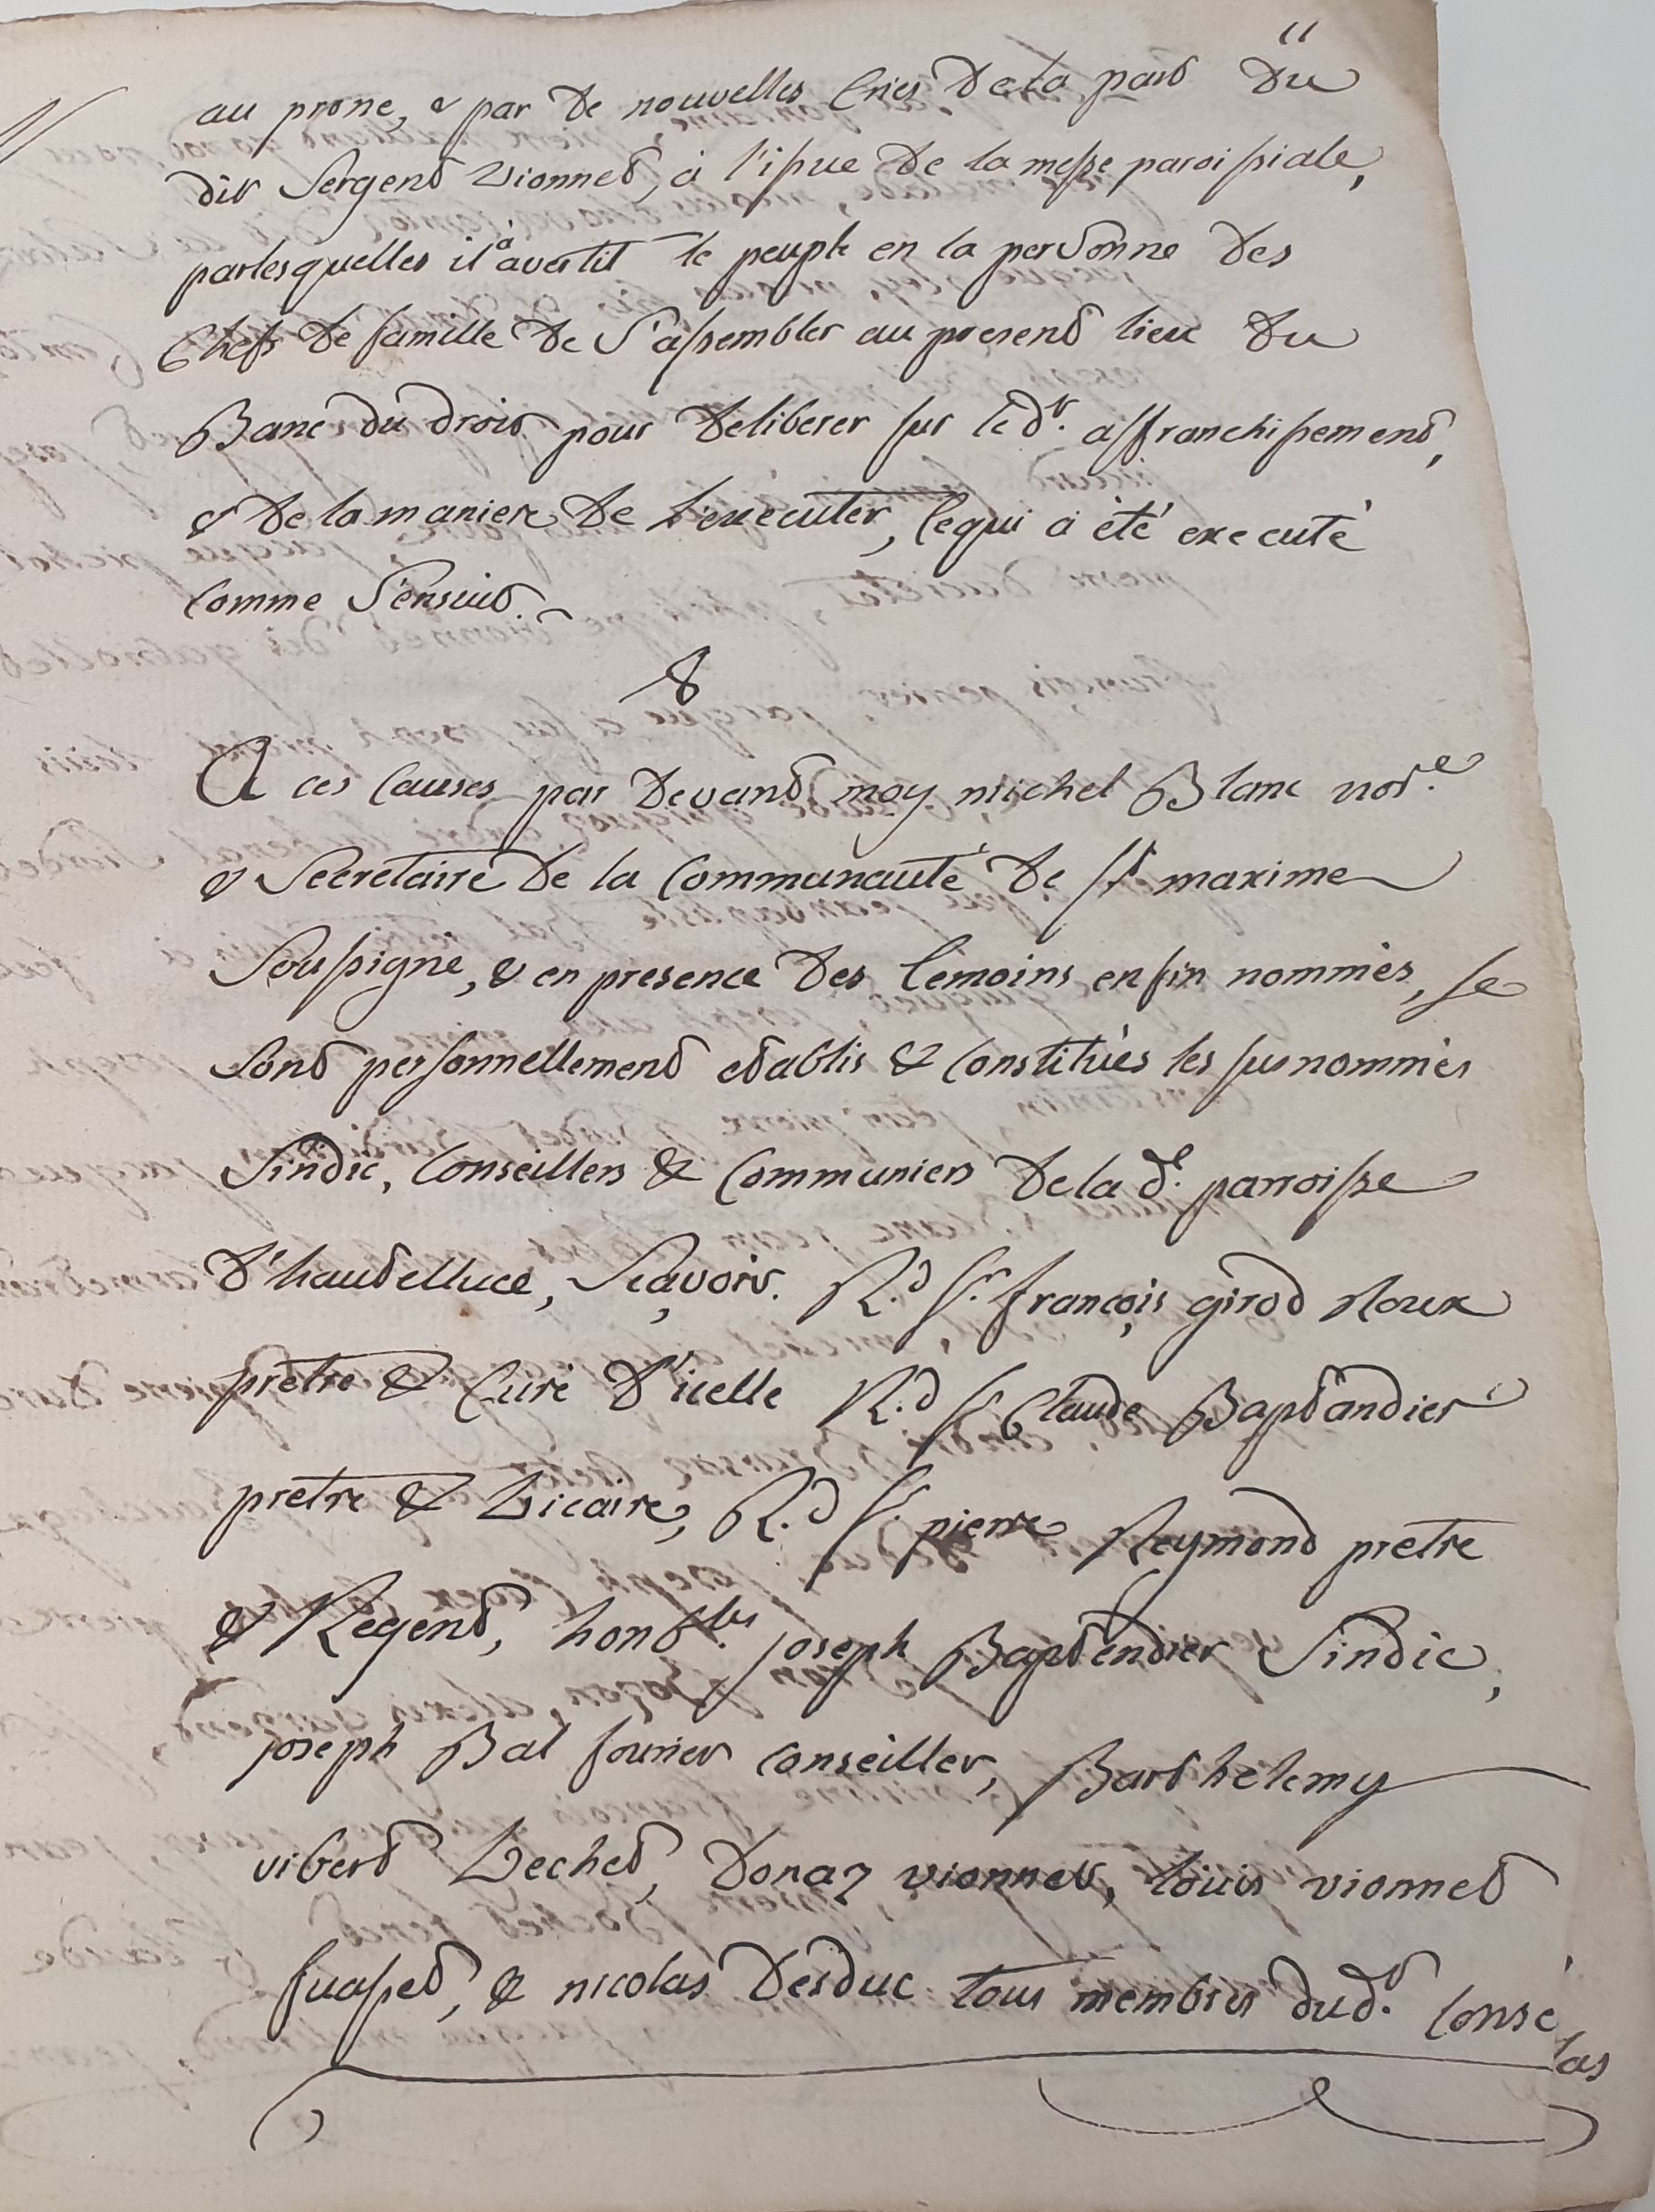 11
au prone, & par de nouvelles Cries de la part du
dit Sergent Vionnet, à l'issue de la messe paroissiale,
parlesquelles il a avertit le peuple en la personne des
Chefs de famille de s'assembler au present lieu du
Banc du droit pour deliberer sur led.t affranchissement,
& de la maniere de l'executer, Cequi a été executé
Comme s'ensuit.
&
A ces Causes par devant moy michel Blanc not.e
& Secretaire de la Communauté de s.t maxime
Soussigné, & en presence des temoins enfin nommés, se
sont personnellement etablis & Constitués les susnommés
Sindic, Conseillers & Communiers de la d.e parroisse
d'hauteluce, Scavoir. R.d s.r françois girod Roux
prêtre & Curé d'icelle R.d s.r Claude Baptandier
prêtre & Vicaire, R.d s.r pierre Reymond prêtre
& Regent, hon.bles joseph Baptendier Sindic,
joseph Bal fourier Conseiller, Barthelemy
vibert Lechet, Donaz vionnet, loüis vionnet
fuasset, & nicolas Desduc tous membres dud.t Conse
las